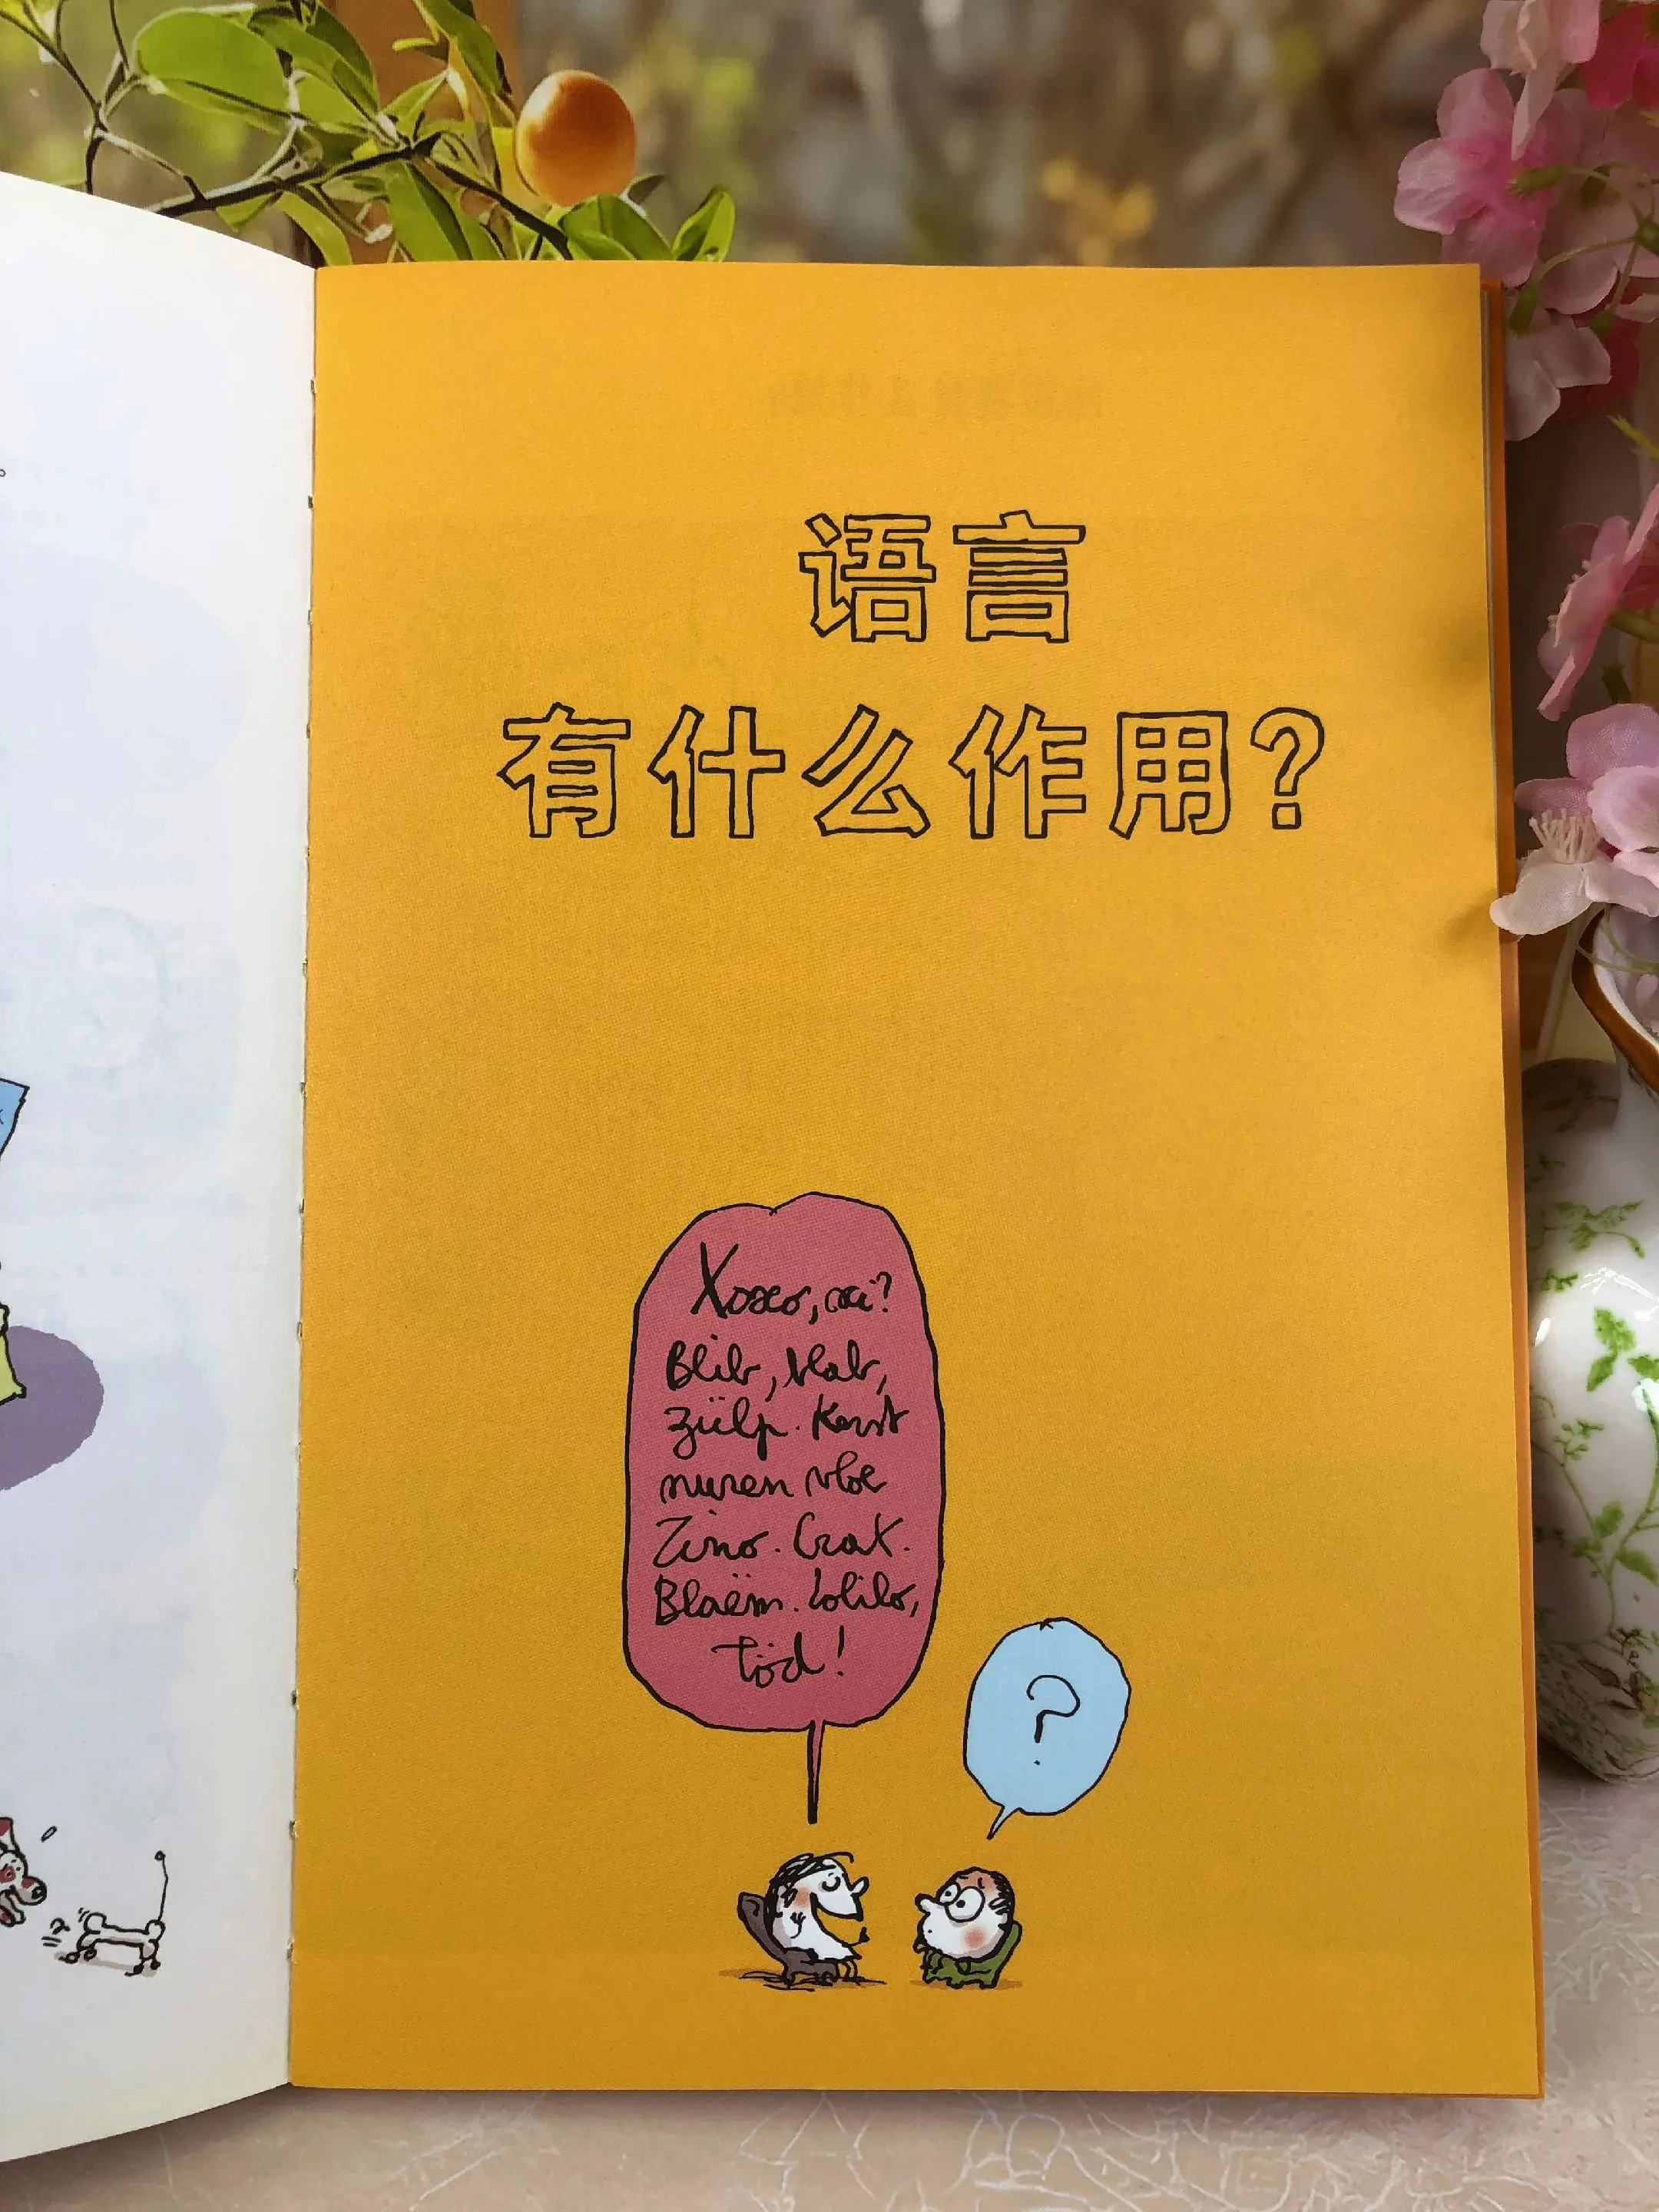 语言
有什么作用?
Xoxo, oxi?
Blib, blab,
zülp. Kerst
nuren vloe
Zino. Crak.
Blaëm. Lolilo,
töd!
?